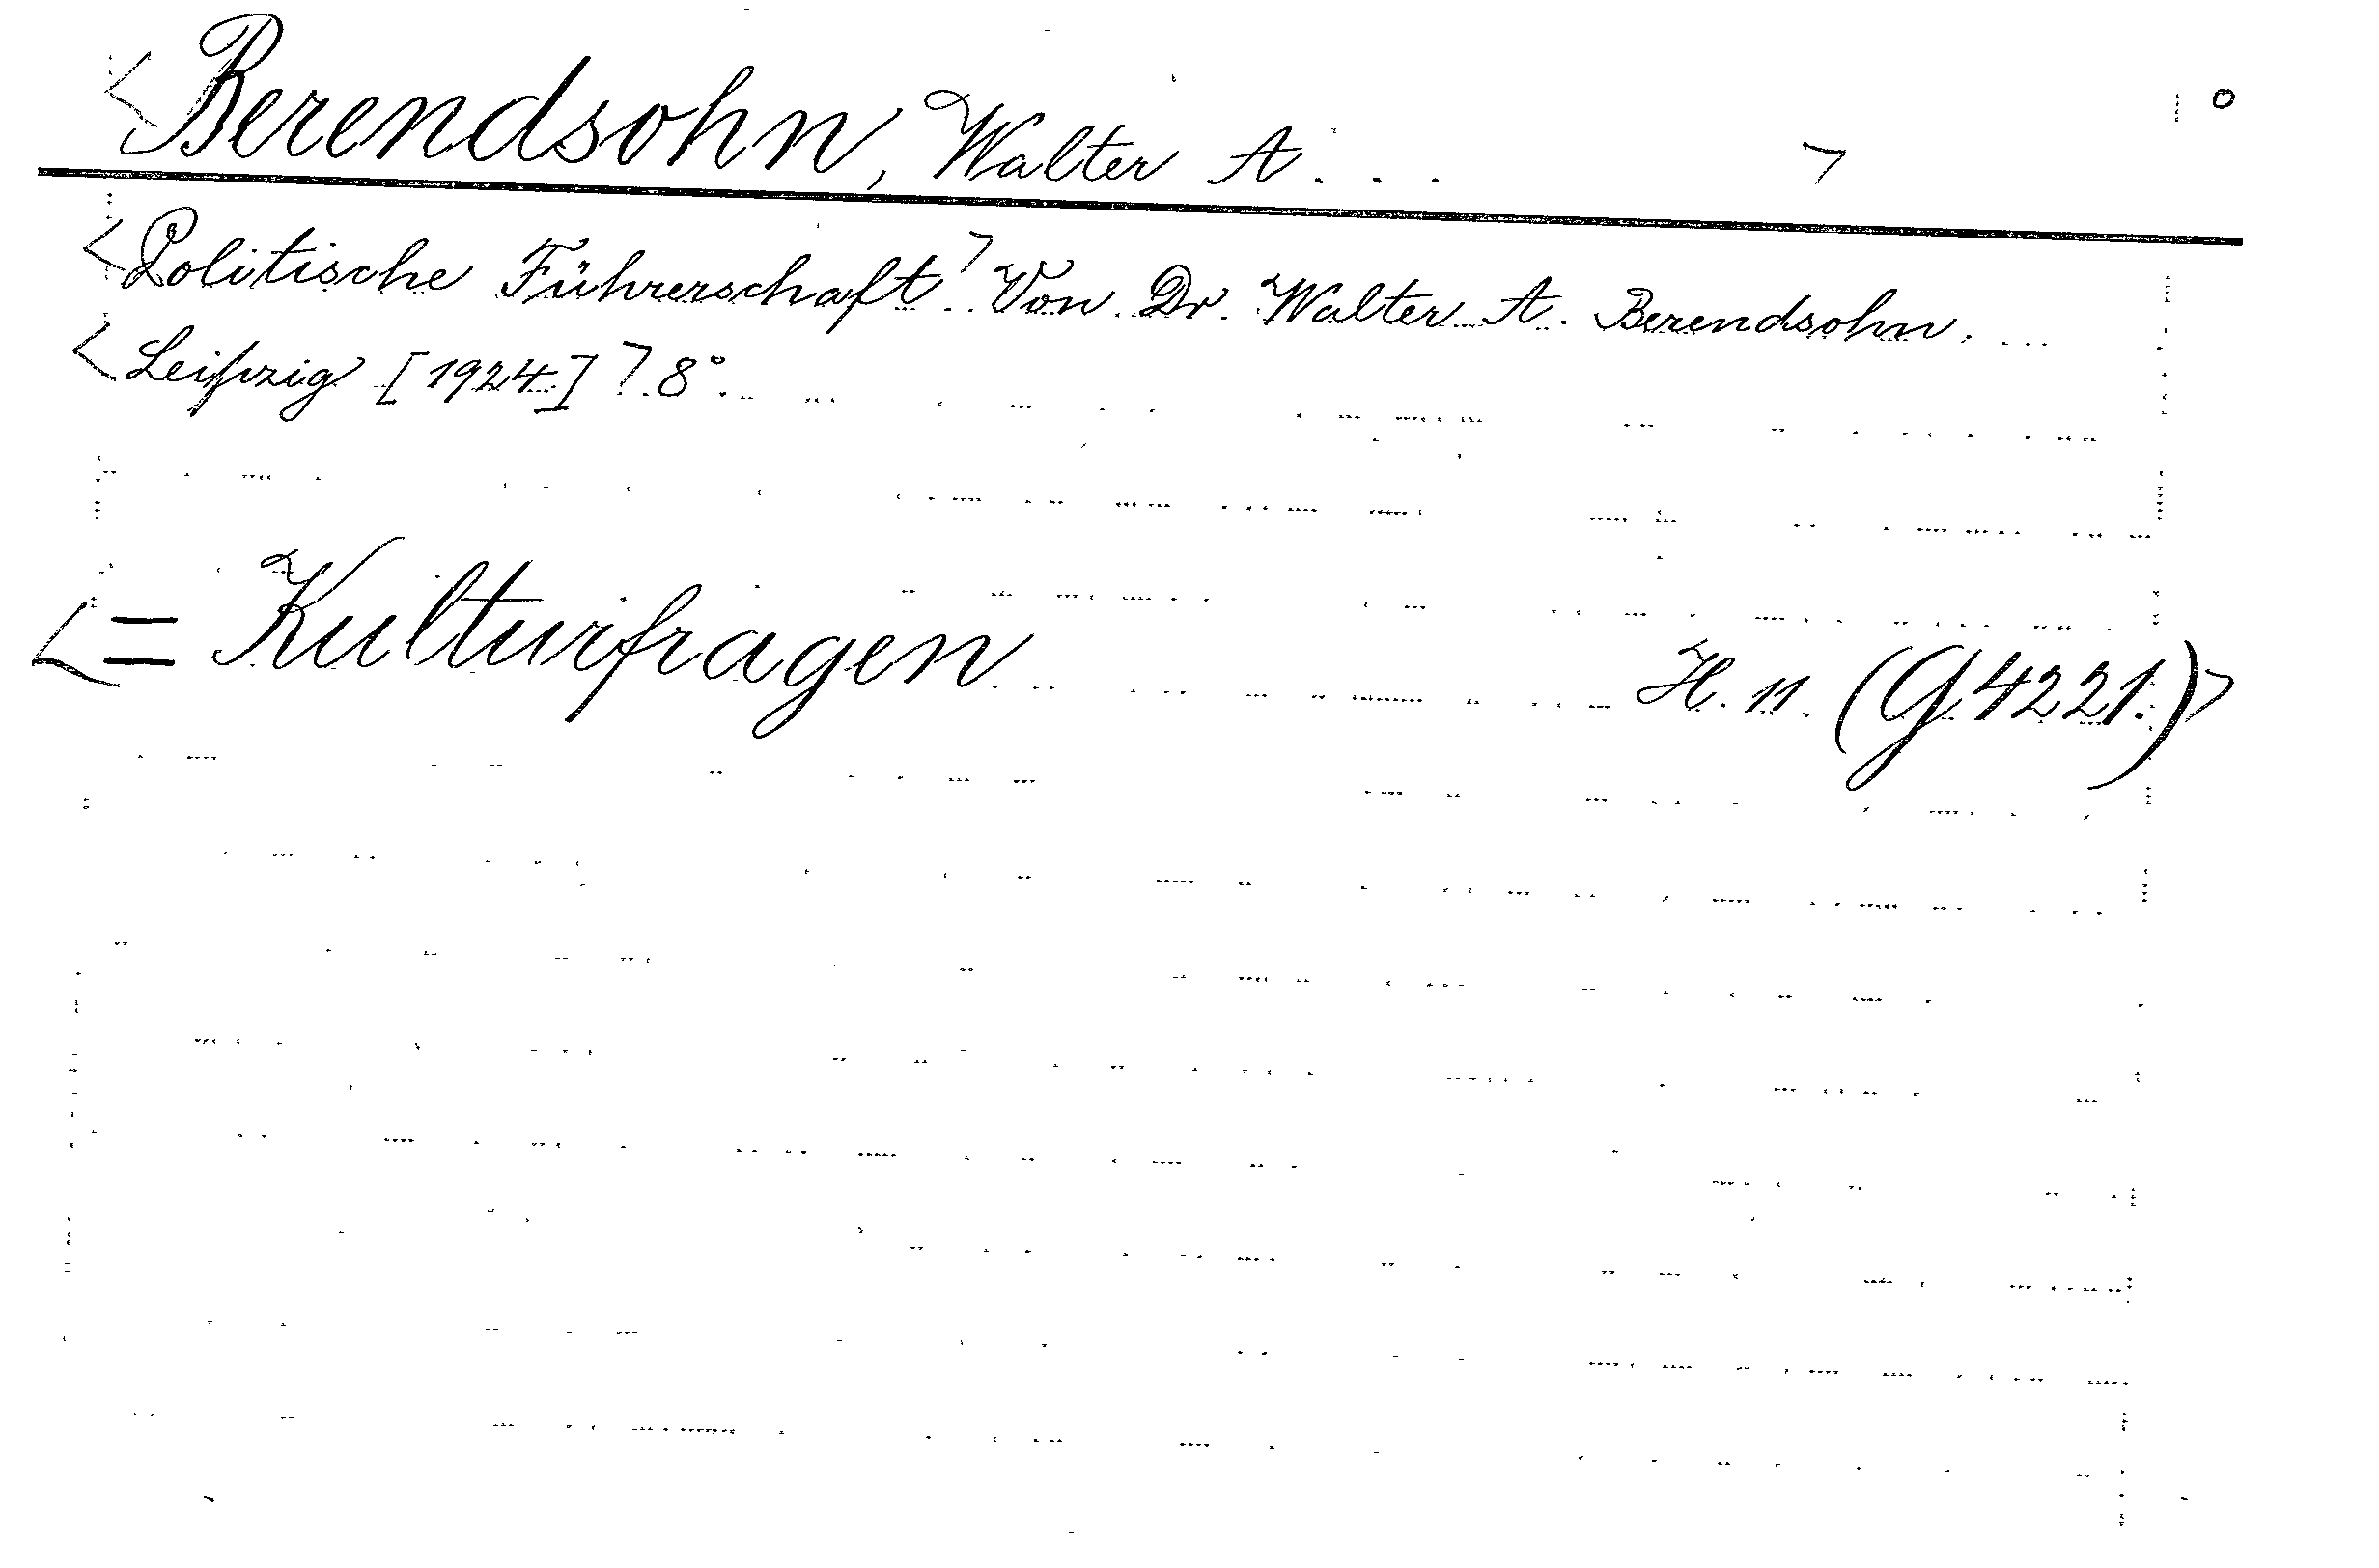 <Berendsohn, Walter A... > °
<Politische Führerschaft>. Von Dr. Walter A. Berendsohn.
<Leipzig [1924]>. 8°.
<= Kulturfragen H. 11. (G 4221.)>